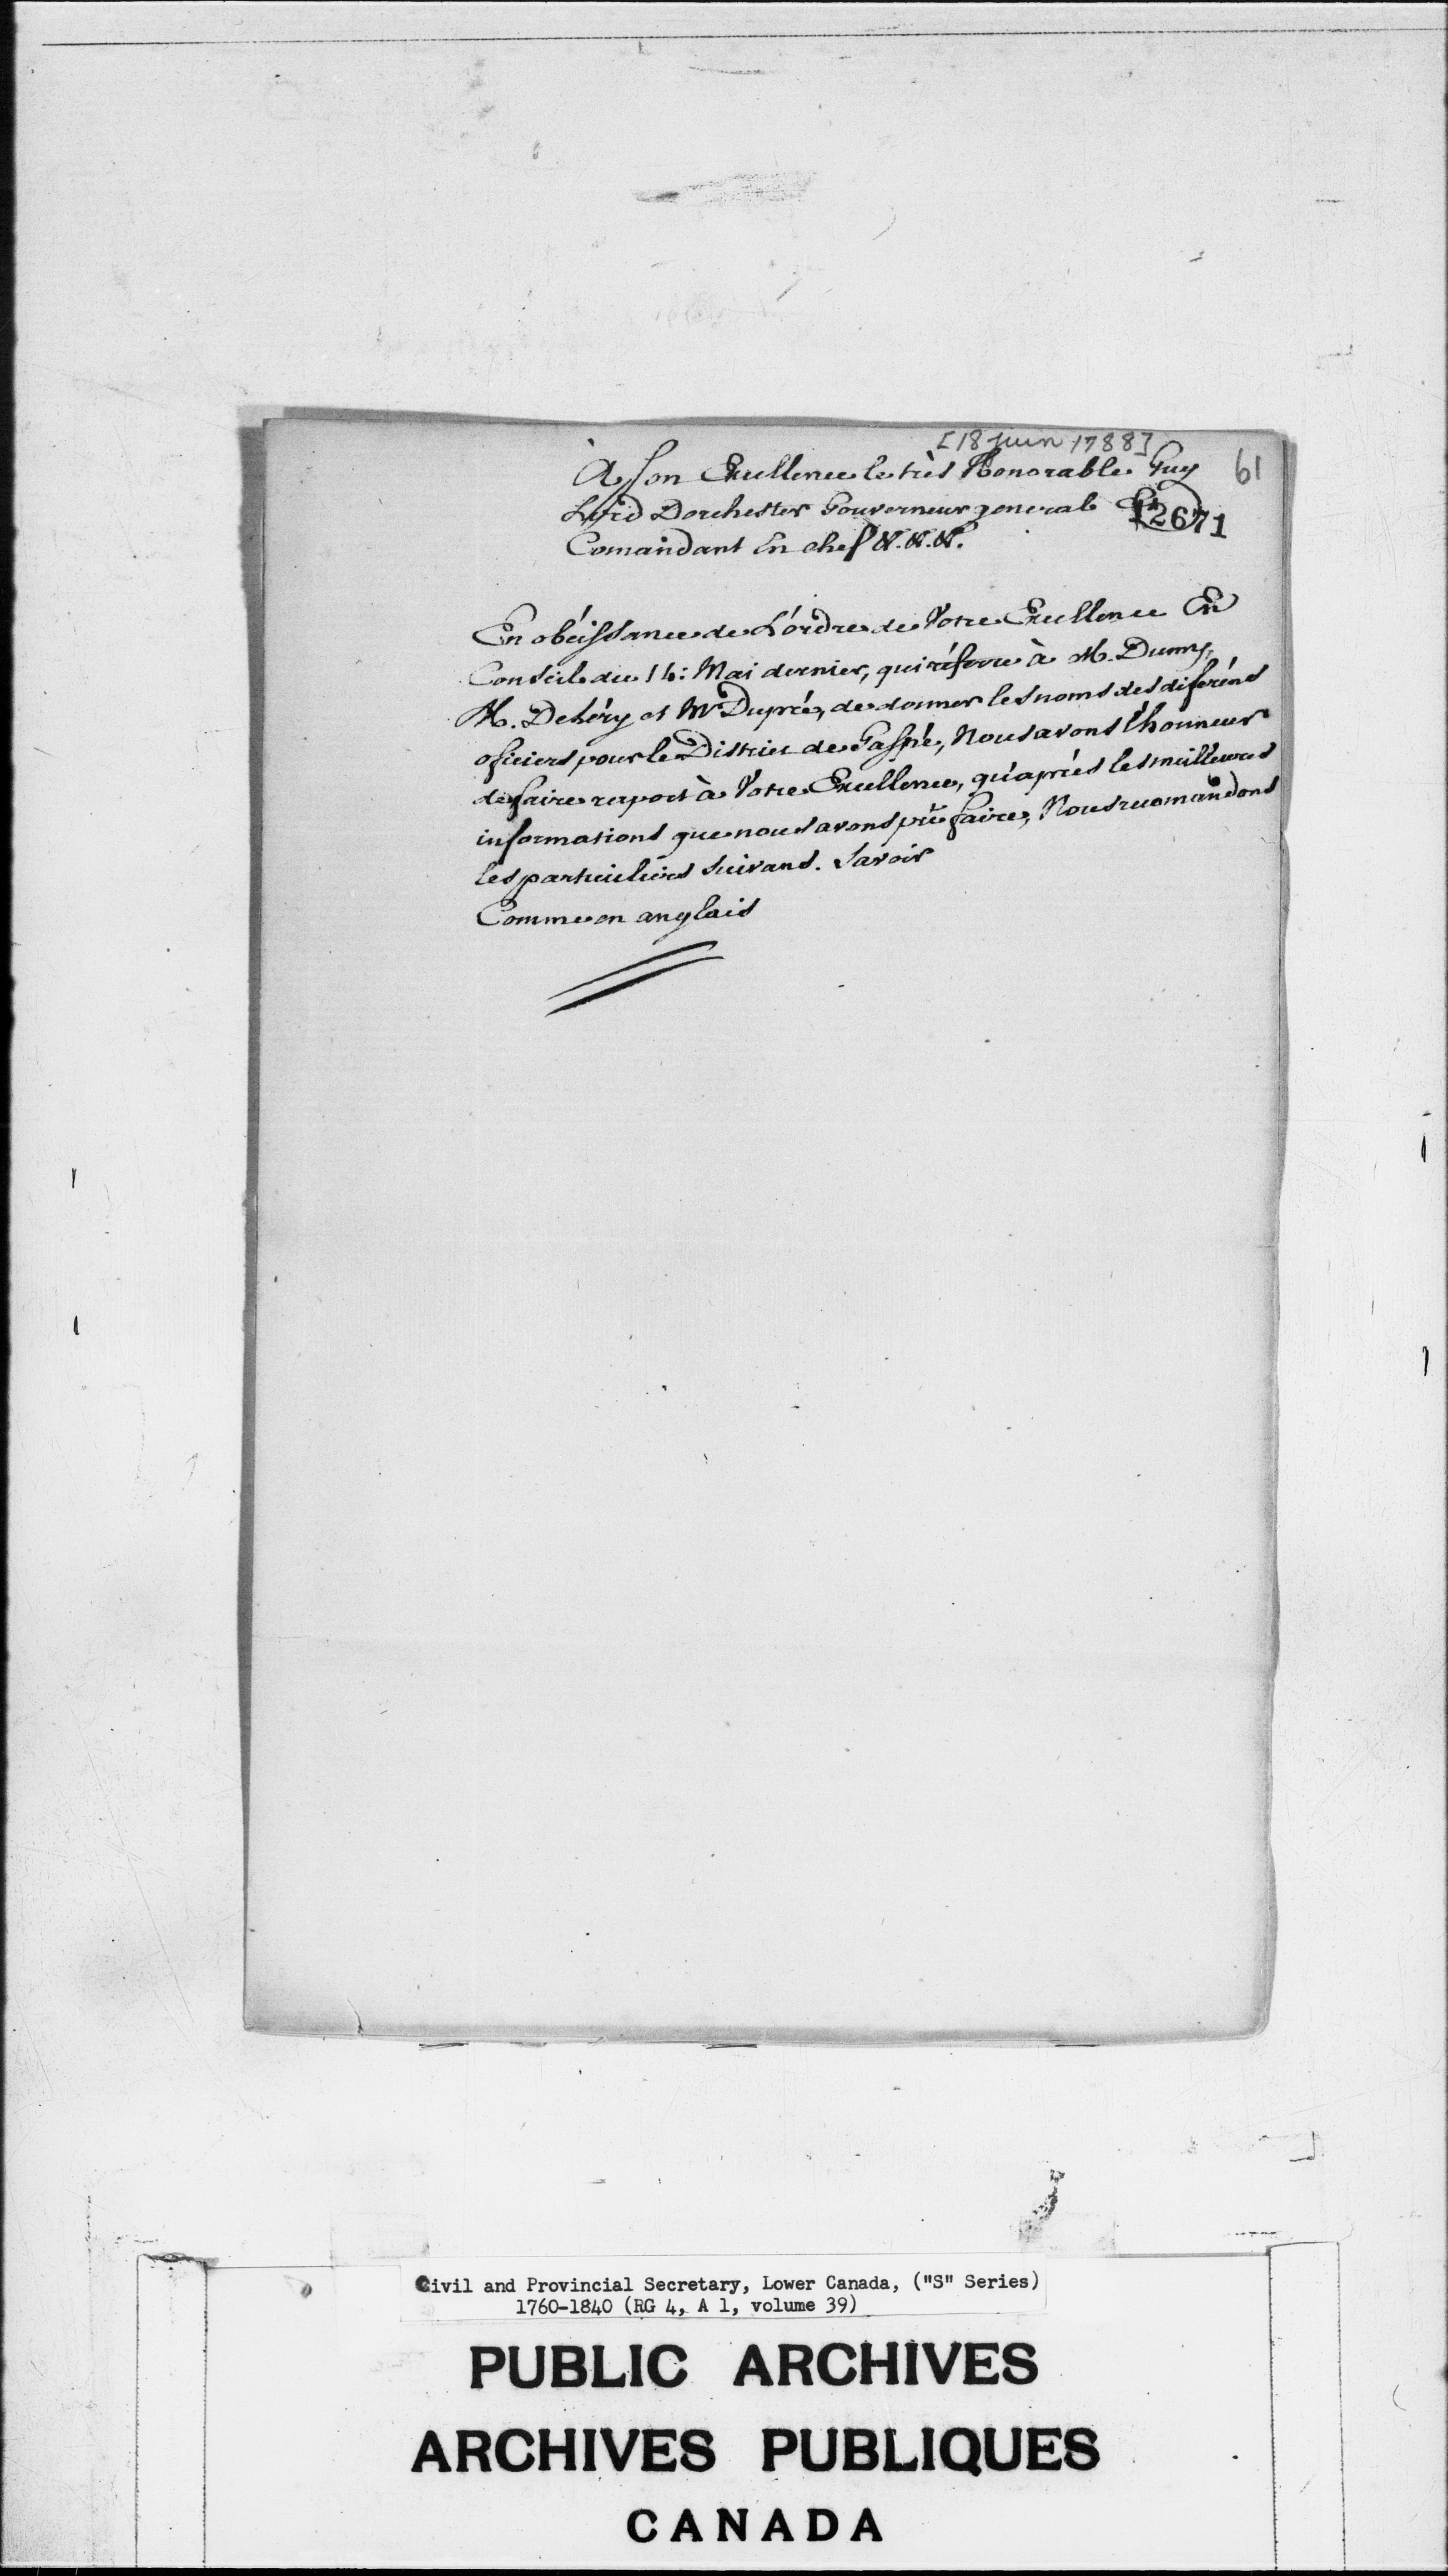 [18 Juin 1788]
À Son Excellence le très Honorable Guy
61
Lord Dorchester Gouverneur general Et
12671
Comandant En chef &. &. &.
En obéissance de L'ordre de Votre Excellence En
Conseil du 14: Mai dernier, qui réferre à M. Dunn,
M. Deléry et Mr Dupré, de donner les noms des diferéns
oficiers pour le District de Gaspé, Nous avons l'honneur
de faire raport à Votre Excellence, qu'aprés les meilleures
informations que nous avons pû faire, Nous recomandons
les particuliérs suivans. Savoir
Comme en anglais
Civil and Provincial Secretary, Lower Canada, ("S" Series)
1760-1840 (RG 4, A 1, volume 39)
PUBLIC ARCHIVES
ARCHIVES PUBLIQUES
CANADA